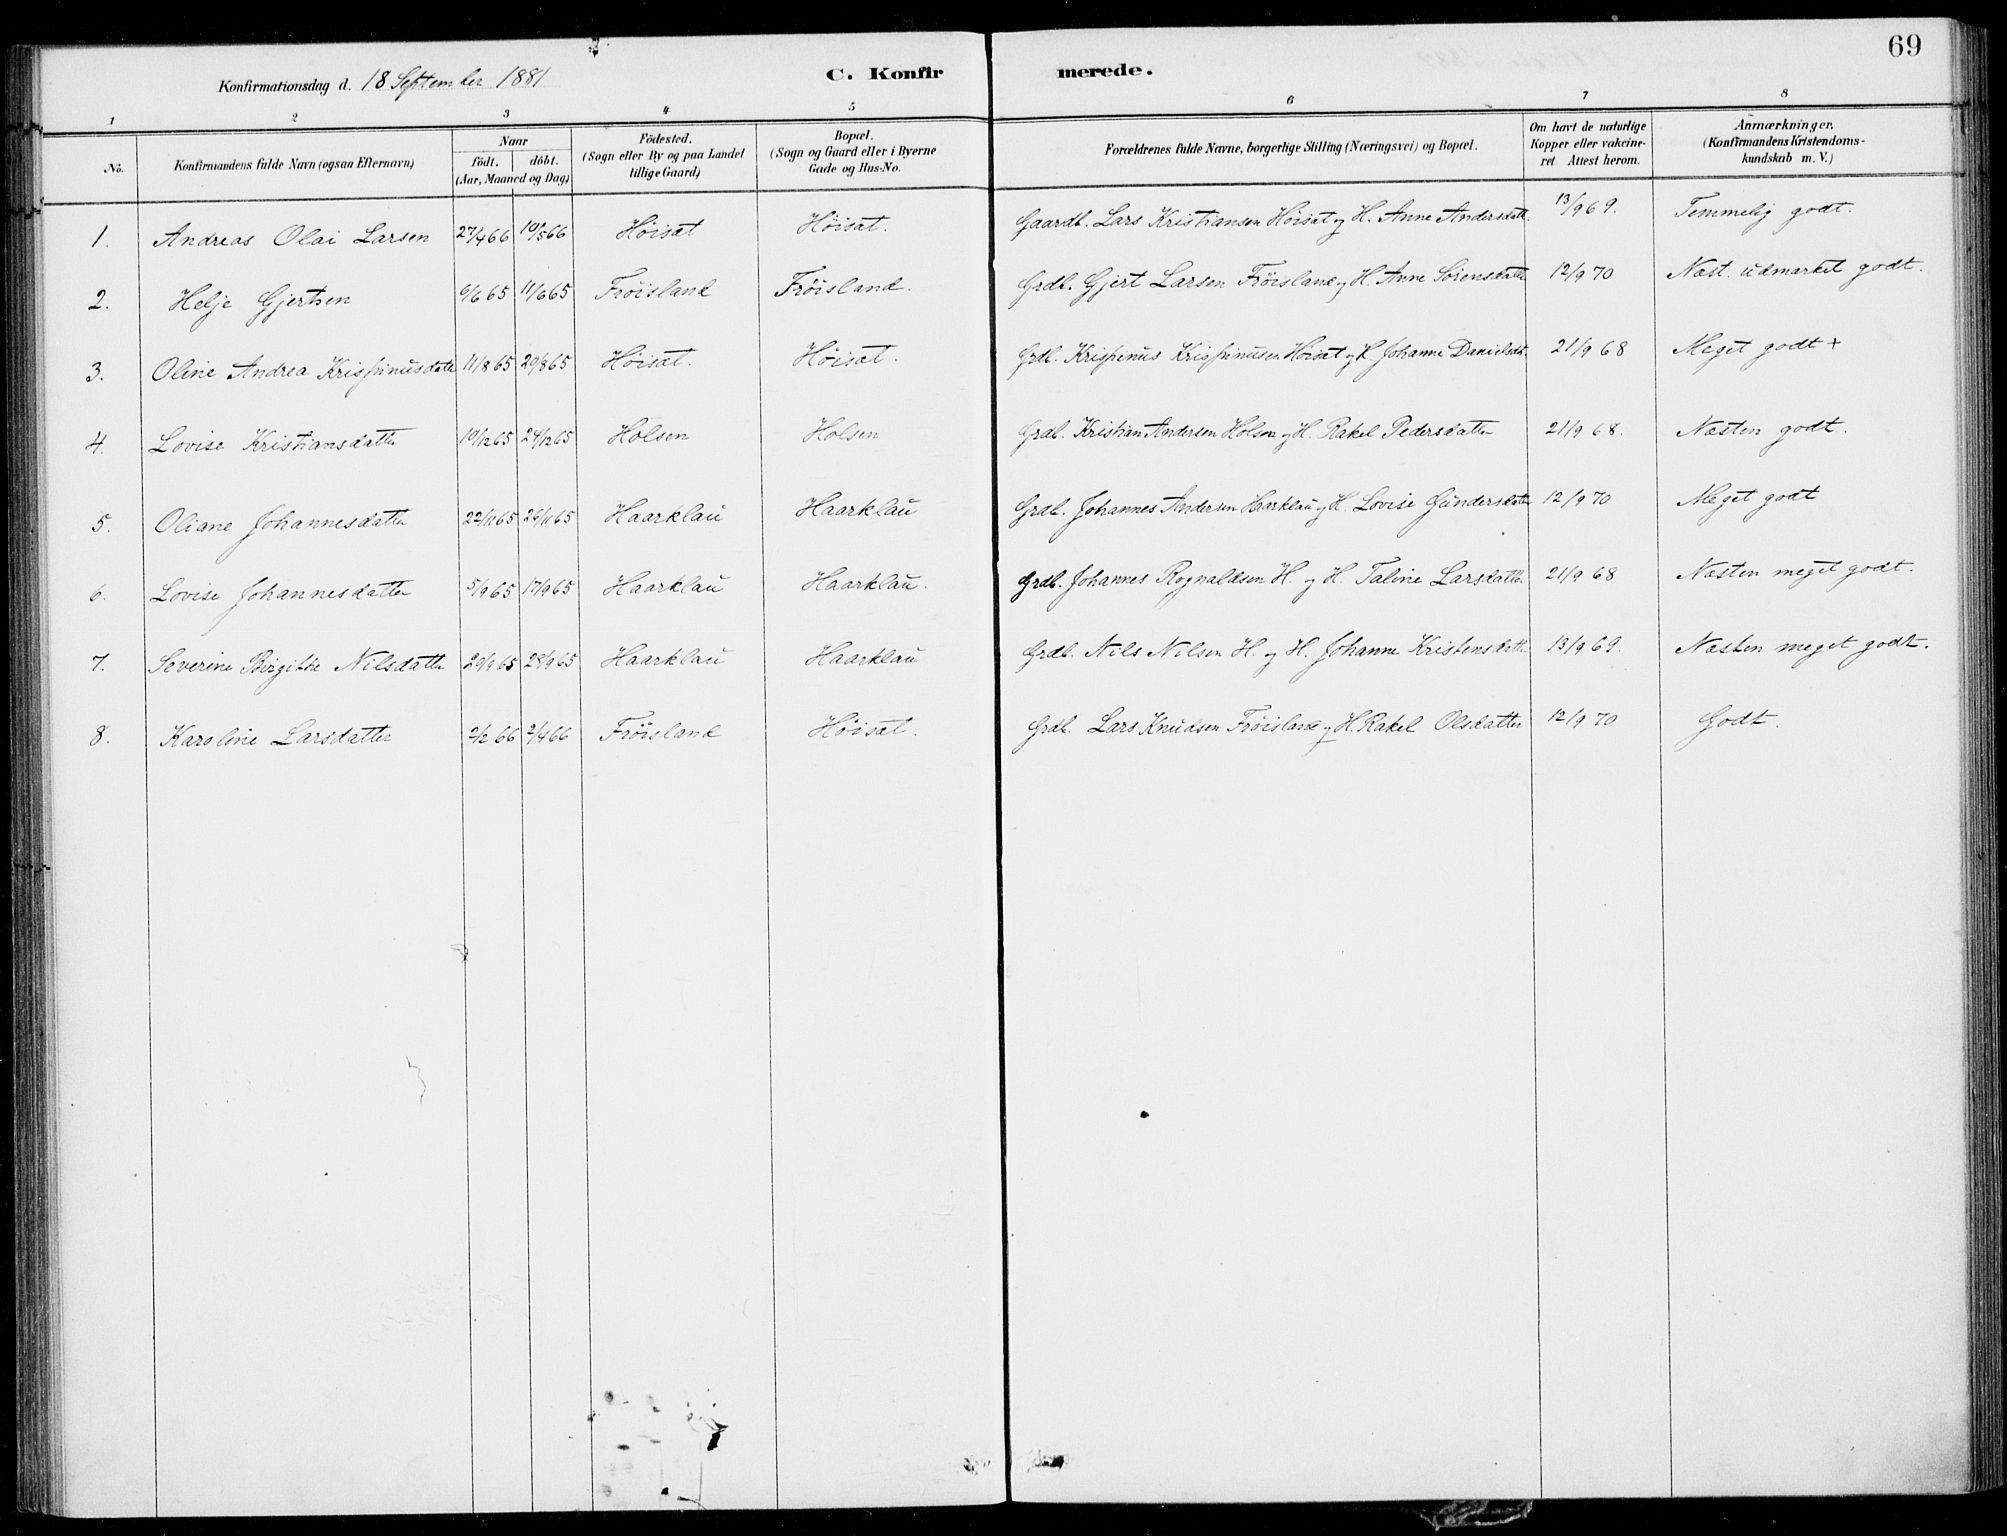 69
Konfirmationsdag d. 18 September 1881 C. Konfirmerede.
1 2 3 4 5 6 7 8
No. Konfirmandens fulde Navn (ogsaa Efternavn) Naar födt. döbt. (Aar, Maaned og Dag) Födested. (Sogn eller By og paa Landet tillige Gaard) Bopæl. (Sogn og Gaard eller i Byerne Gade og Hus-No. Forældrenes fulde Navne, borgerlige Stilling (Næringsvei) og Bopæl. Om havt de naturlige Kopper eller vakcineret Attest herom. Anmærkninger. (Konfirmandens Kristendomskundskab m. V.)
1. Andreas Olai Larsen 27/4 66 10/5 66 Höisæt Höisæt. Gaardb. Lars Kristiansen Höisæt og H. Anne Andersdatt. 13/9 69. Temmelig godt.
2. Helje Gjertsen 6/6 65 11/6 65 Fröisland Fröisland. Grdb. Gjert Larsen Fröisland og H. Anne Sörensdatter 12/9 70 Næst. udmærket godt.
3. Oline Andrea Krispinusdatter 11/8 65 20/8 65 Höisæt. Höisæt. Grdb. Krispinus Krispinusen Höisæt og H. Johanne Danielsdt. 21/9 68 Meget godt +
4. Lovise Kristiansdatter 10/12 65 24/12 65 Holsen Holsen Grdb. Kristian Andersen Holsen og H. Rakel Pedersdatter 21/9 68. Næsten godt.
5. Oliane Johannesdatter 22/11 65 26/11 65 Haarklau Haarklau Grdb. Johannes Andersen Haarklau og H. Lovise Gundersdatter 12/9 70 Meget godt
6. Lovise Johannesdatter 5/9 65 17/9 65 Haarklau Haarklau. Grdb. Johannes Rognaldsen H. og H. Taline Larsdatter 21/9 68 Næsten meget godt.
7. Severine Birgitte Nilsdatter 20/9 65 28/9 65 Haarklau Haarklau Grdb. Nils Nilsen H. og H. Johanne Kristensdatter 13/9 69. Næsten meget godt.
8. Karoline Larsdatter 2/2 66 2/4 66 Fröisland Höisæt. Grdb. Lars Knudsen Fröisland og H. Rakel Olsdatter 12/9 70 Godt.